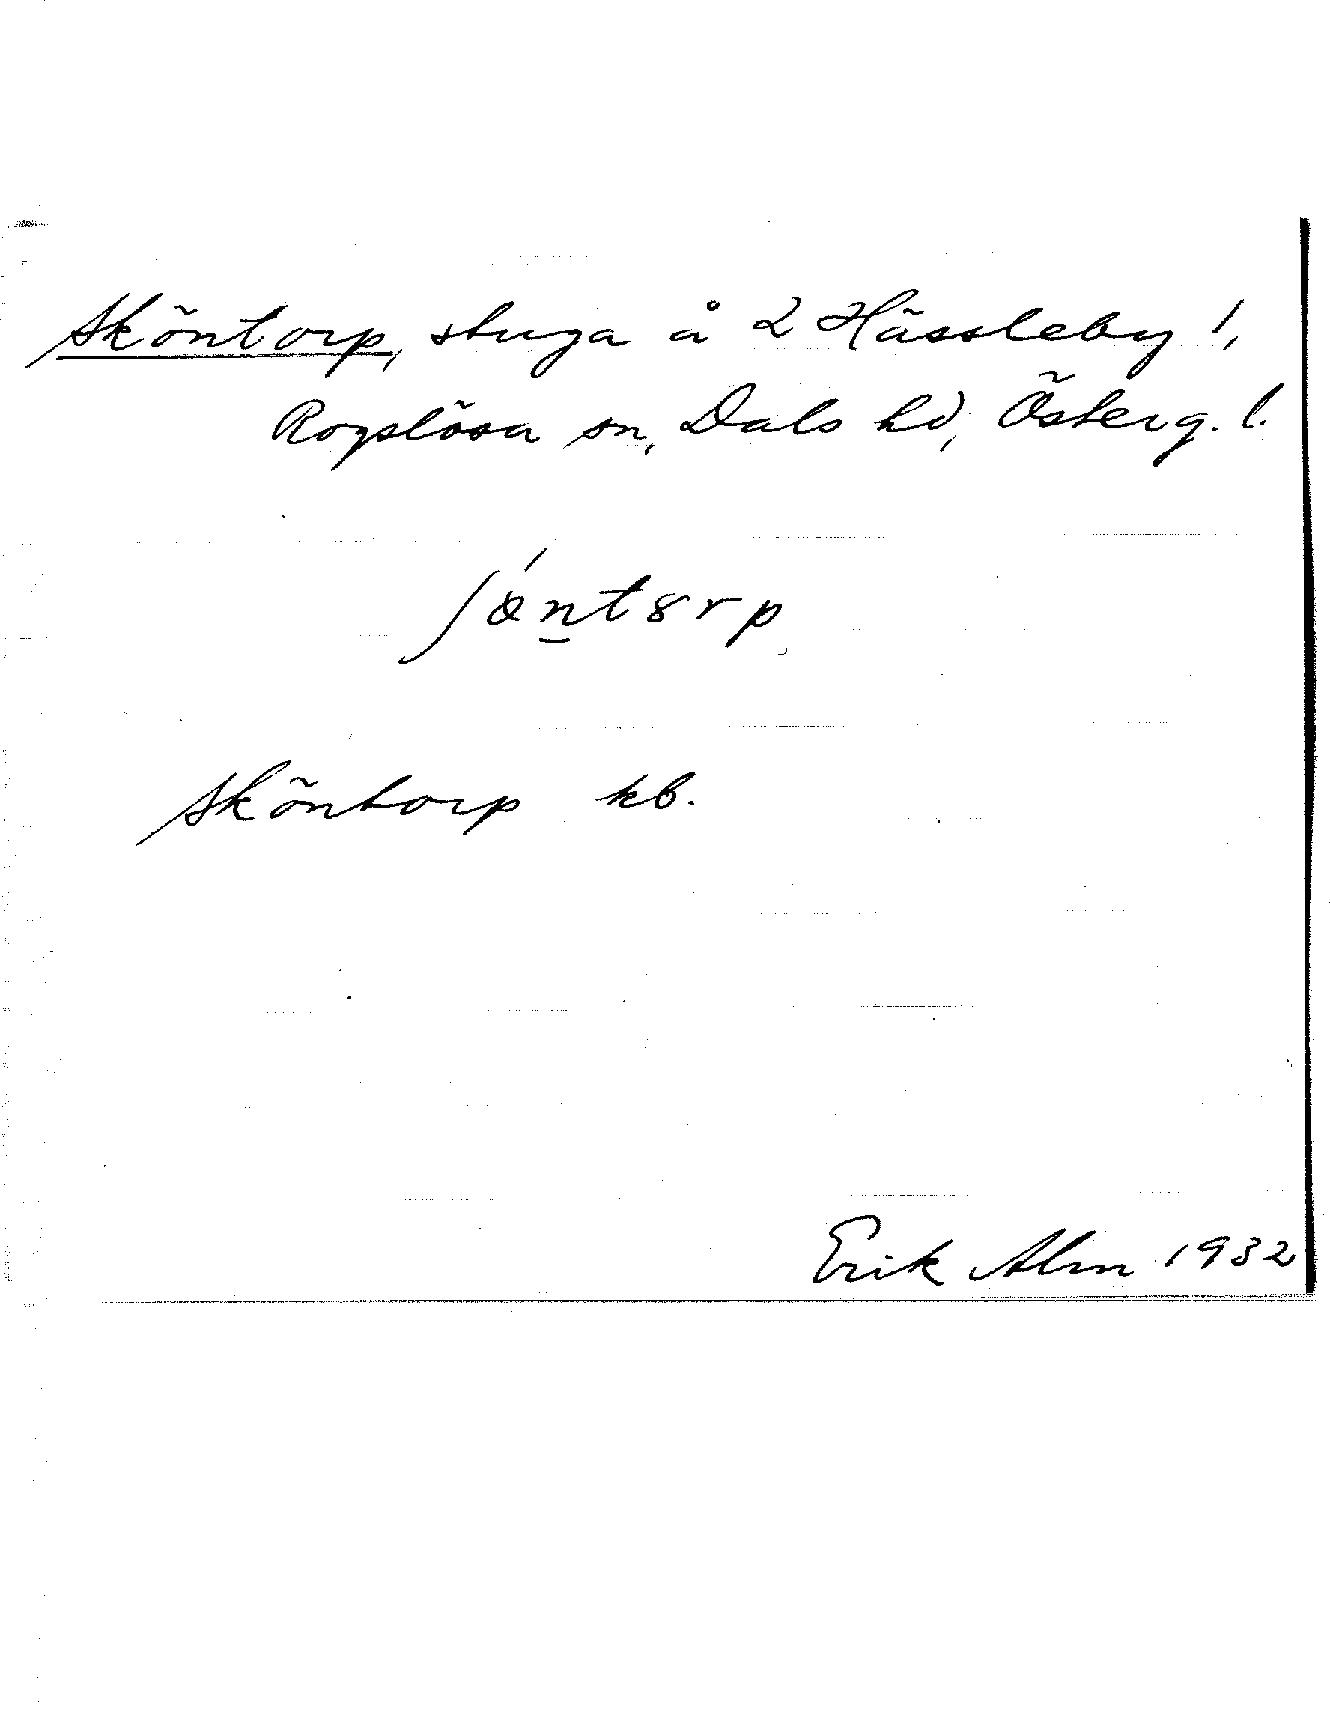 Sköntorp, stuga å 2 Hässleby 1,
Rogslösa sn, Dals hd, Österg. l.
ʃǿn̲t8rp
Sköntorp kb.
Erik Alm 1932